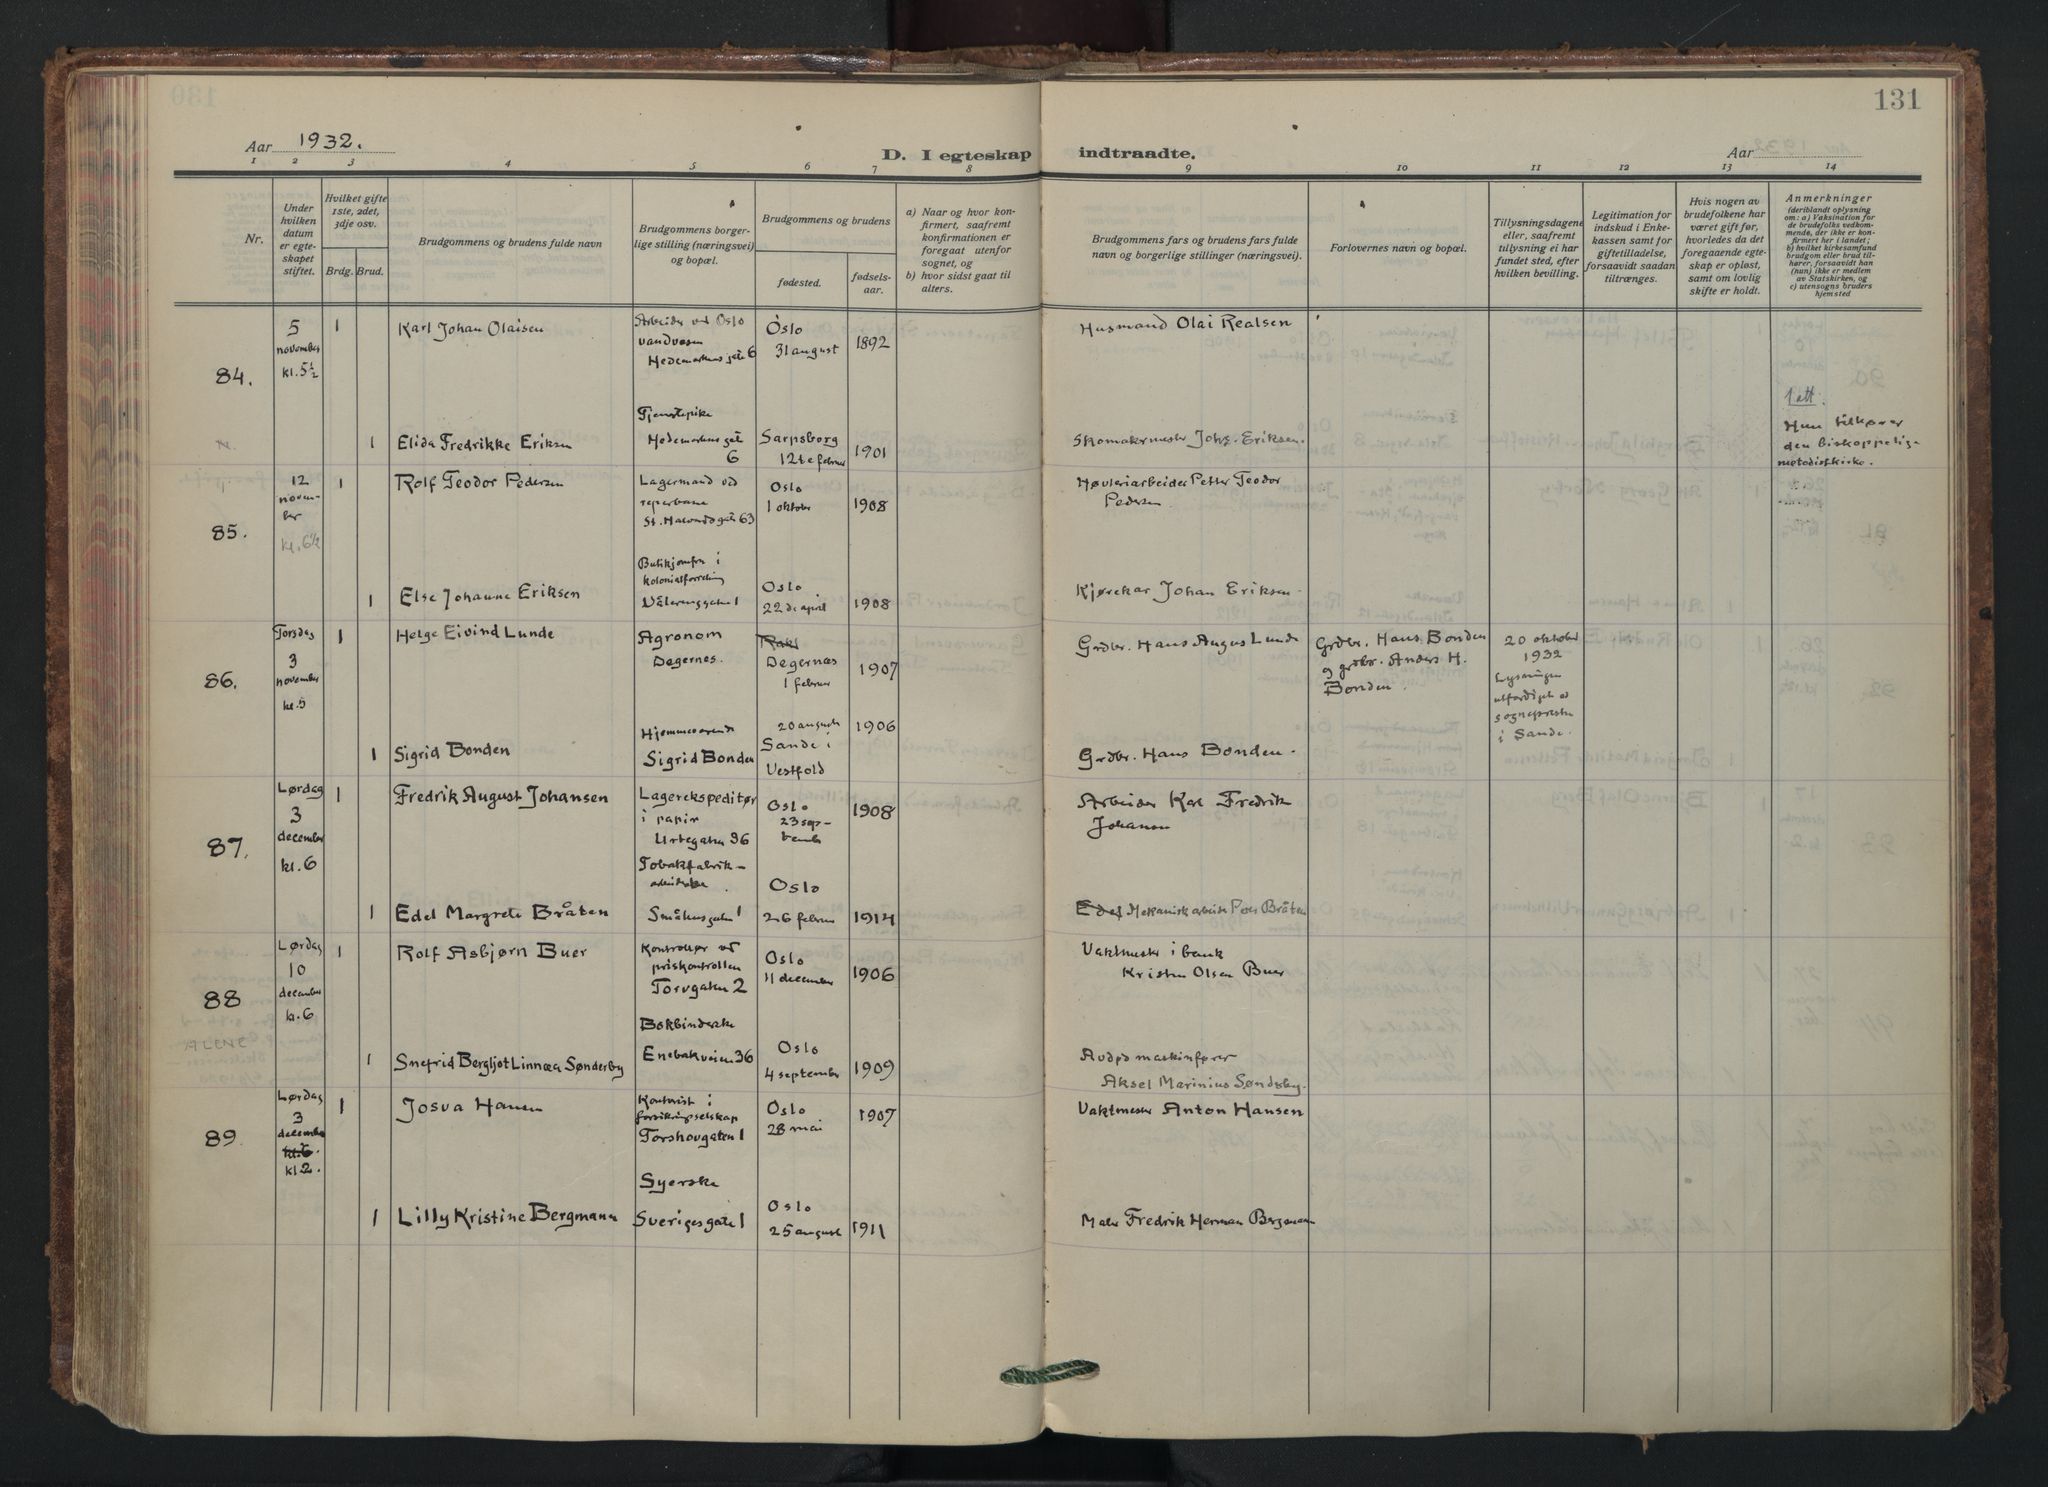 131
Aar 1932.
D. I egteskap indtraadte.
Aar
1 2 3 4 5 6 7 8 9 10 11 12 13 14
Nr.
Under hvilken datum er egteskapet stiftet.
Hvilket gifte 1ste, 2det, 3dje osv.
Brdg. Brud.
Brudgommens og brudens fulde navn
Brudgommens borgerlige stilling (næringsvei) og bopæl.
Brudgommens og brudens
fødested.
fødselsaar.
a) Naar og hvor konfirmert, saafremt konfirmationen er foregaat utenfor sognet, og
b) hvor sidst gaat til alters.
Brudgommens fars og brudens fars fulde navn og borgerlige stillinger (næringsvei).
Forlovernes navn og bopæl.
Tillysningsdagene eller, saafremt tillysning ei har fundet sted, efter hvilken bevilling.
Legitimation for indskud i Enkekassen samt for giftetilladelse, forsaavidt saadan tiltrænges.
Hvis nogen av brudefolkene har været gift før, hvorledes da det foregaaende egteskap er opløst, samt om lovlig skifte er holdt.
Anmerkninger
(deriblandt oplysning om: a) Vaksination for de brudefolks vedkommende, der ikke er konfirmert her i landet; b) hvilket kirkesamfund brudgom eller brud tilhører, forsaavidt han (hun) ikke er medlem av Statskirken, og c) utensogns bruders hjemsted
84.
5 november kl. 5½
1
Karl Johan Olaisen
Arbeider ved Oslo
vandvæsen
Hedemarkens gate 6
Oslo
31 august
1892
Husmand Olai Realsen
1
Elida Fredrikke Eriksen
Tjenestepike
Hedemarkens gate
6
Sarpsborg
12te februar
1901
Skomakermester Johs. Eriksen.
1 att.
Hun tilhører
den biskoppelige
metodistkirke.
85.
12 november kl. 6½
1
Rolf Teodor Pedersen
Lagermand ved
reperbane
St. Halvards gate 63
Oslo
1 oktober
1908
Høvleriarbeider Petter Teodor
Pedersen
1
Else Johanne Eriksen
Butikjomfru i
kolonialforretning
Vålerenggaten 1
Oslo
22de april
1908
Kjørekar Johan Eriksen.
86.
Torsdag 3 november kl. 5
1
Helge Eivind Lunde
Agronom
Degernes.
Degernæs
1 februar
1907
Grdbr. Hans Augus Lunde
Grdbr. Hans Bonden
og grdbr. Anders H.
Bonden.
20 oktober
1932
Lysningen
utfærdiget av
sognepresten
i Sande.
1
Sigrid Bonden
Hjemmeværende
Sigrid Bonden
20 august
Sande i
Vestfold
1906
Grdbr. Hans Bonden.
87.
Lørdag 3 december kl. 6
1
Fredrik August Johansen
Lagerekspeditør
i papir
Urtegaten 36
Oslo
23 september
1908
Arbeider Karl Fredrik
Johansen
1
Edel Margrete Bråten
Tobakfabrik-
arbeiderske.
Småhusgaten 1
Oslo
26 februar
1914
Edel Mekanisk arbeider Peer Bråten
88
Lørdag 10 december kl. 6
1
Rolf Asbjørn Buer
Kontrollør ved
priskontrollen
Torvgaten 2
Oslo
11 december
1906
Vaktmester i bank
Kristen Olsen Buer
ALENE
1
Snefrid Bergljot Linnæa Sønderby
Bokbinderske
Enebakveien 36
Oslo
4 september
1909
Avdød maskinfører
Aksel Marinius Sønderby.
89.
Lørdag 3 december kl. 6. kl 2.
1
Josva Hansen
Kontorist i
forsikringselskap
Torshovgaten 1
Oslo
28 mai
1907
Vaktmester Anton Hansen
1
Lilly Kristine Bergmann
Syerske
Sverigesgate 1
Oslo
25 august
1911
Maler Fredrik Herman Bergmann